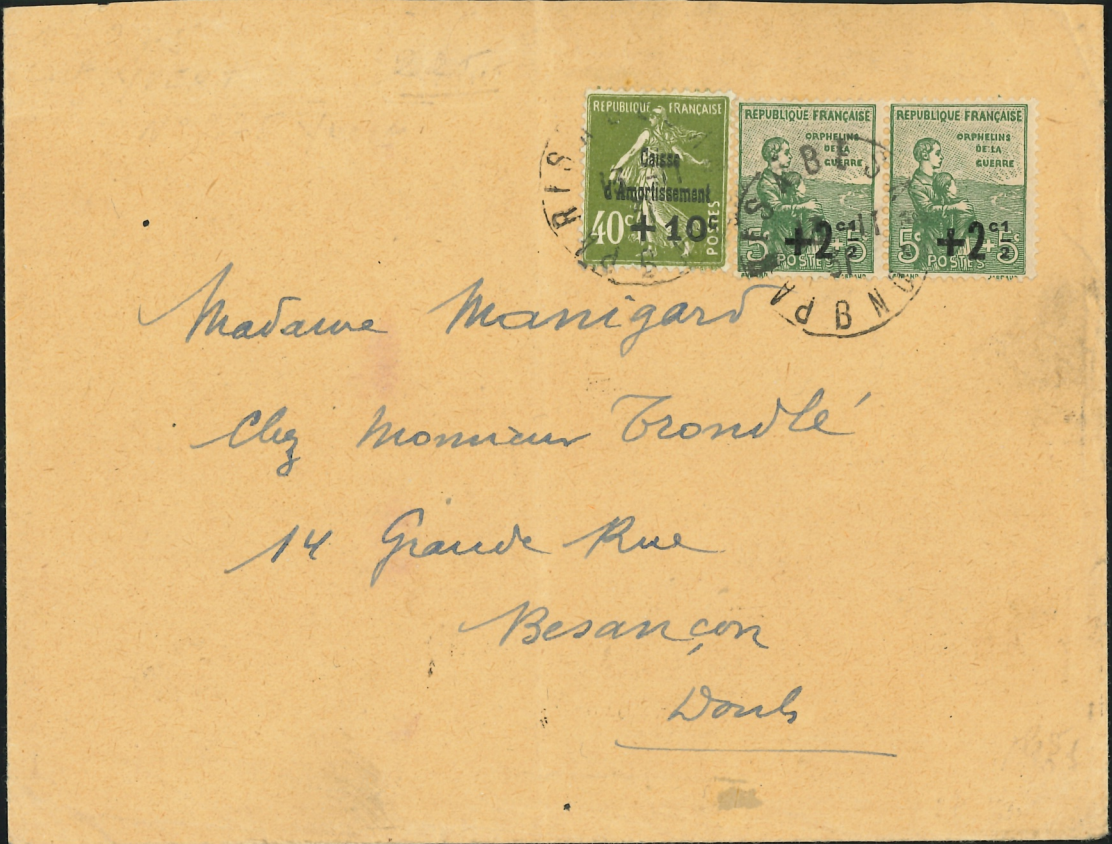 REPUBLIQUE FRANÇAISE
Caisse
d'Amortissement
40c +10c
POSTES
REPUBLIQUE FRANÇAISE
ORPHELINS
DE LA
GUERRE
5c +2c1/2 +5c
POSTES
REPUBLIQUE FRANÇAISE
ORPHELINS
DE LA
GUERRE
5c +2c1/2 +5c
POSTES
PARIS
Madame Manigard
Chez Monsieur Trondlé
14 Grande Rue
Besançon
Doubs